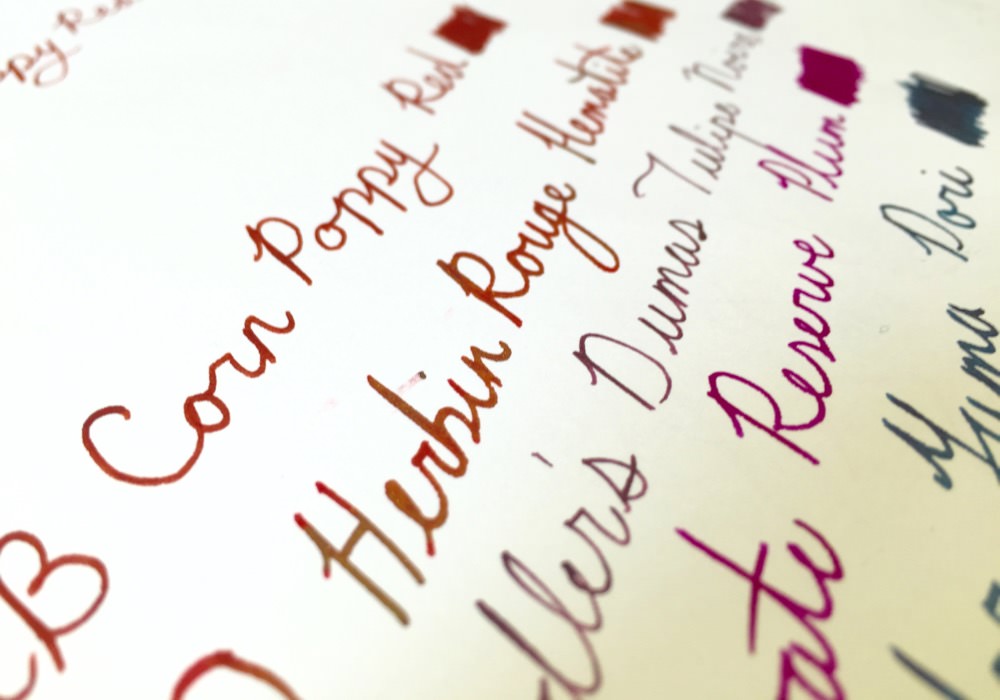 ppy Red
B Corn Poppy Red
Herbin Rouge Hematite
ller's Dumas Tulipe Noire
ate Reserve Plum
Yuma Dori